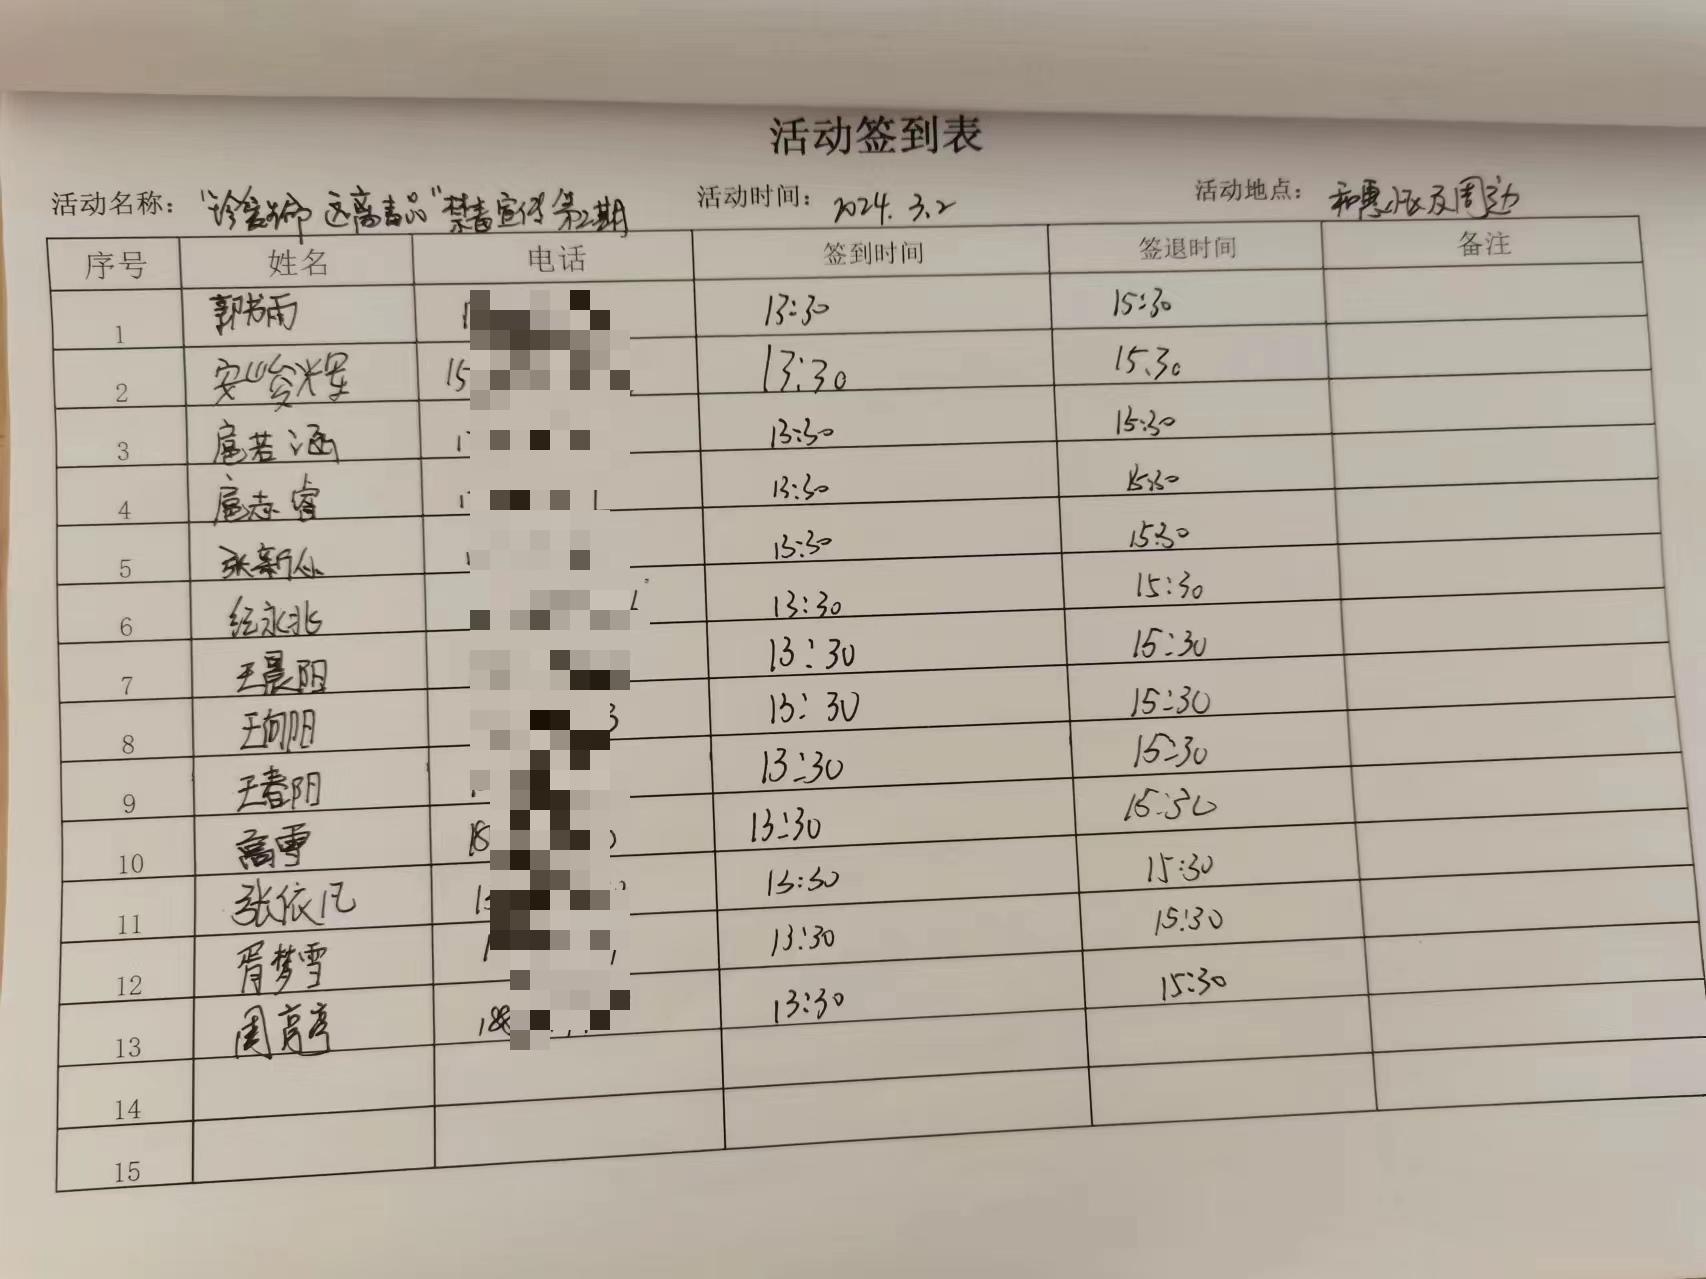 活动签到表
活动名称："珍爱生命 远离毒品"禁毒宣传第2期 活动时间：2024.3.2 活动地点：和惠小区及周边
序号 姓名 电话 签到时间 签退时间 备注
1 郭书雨 13:30 15:30
2 15 13:30 15:30
3 扈若涵 13:30 15:30
4 扈志睿 13:30 15:30
5 张新 13:30 15:30
6 纪永兆 13:30 15:30
7 王晨阳 13:30 15:30
8 王向阳 3 13:30 15:30
9 王春阳 13:30 15:30
10 高雪 18 13:30 15:30
11 张依凡 13:30 15:30
12 胥梦雪 13:30 15:30
13 周高亭 18 13:30 15:30
14
15